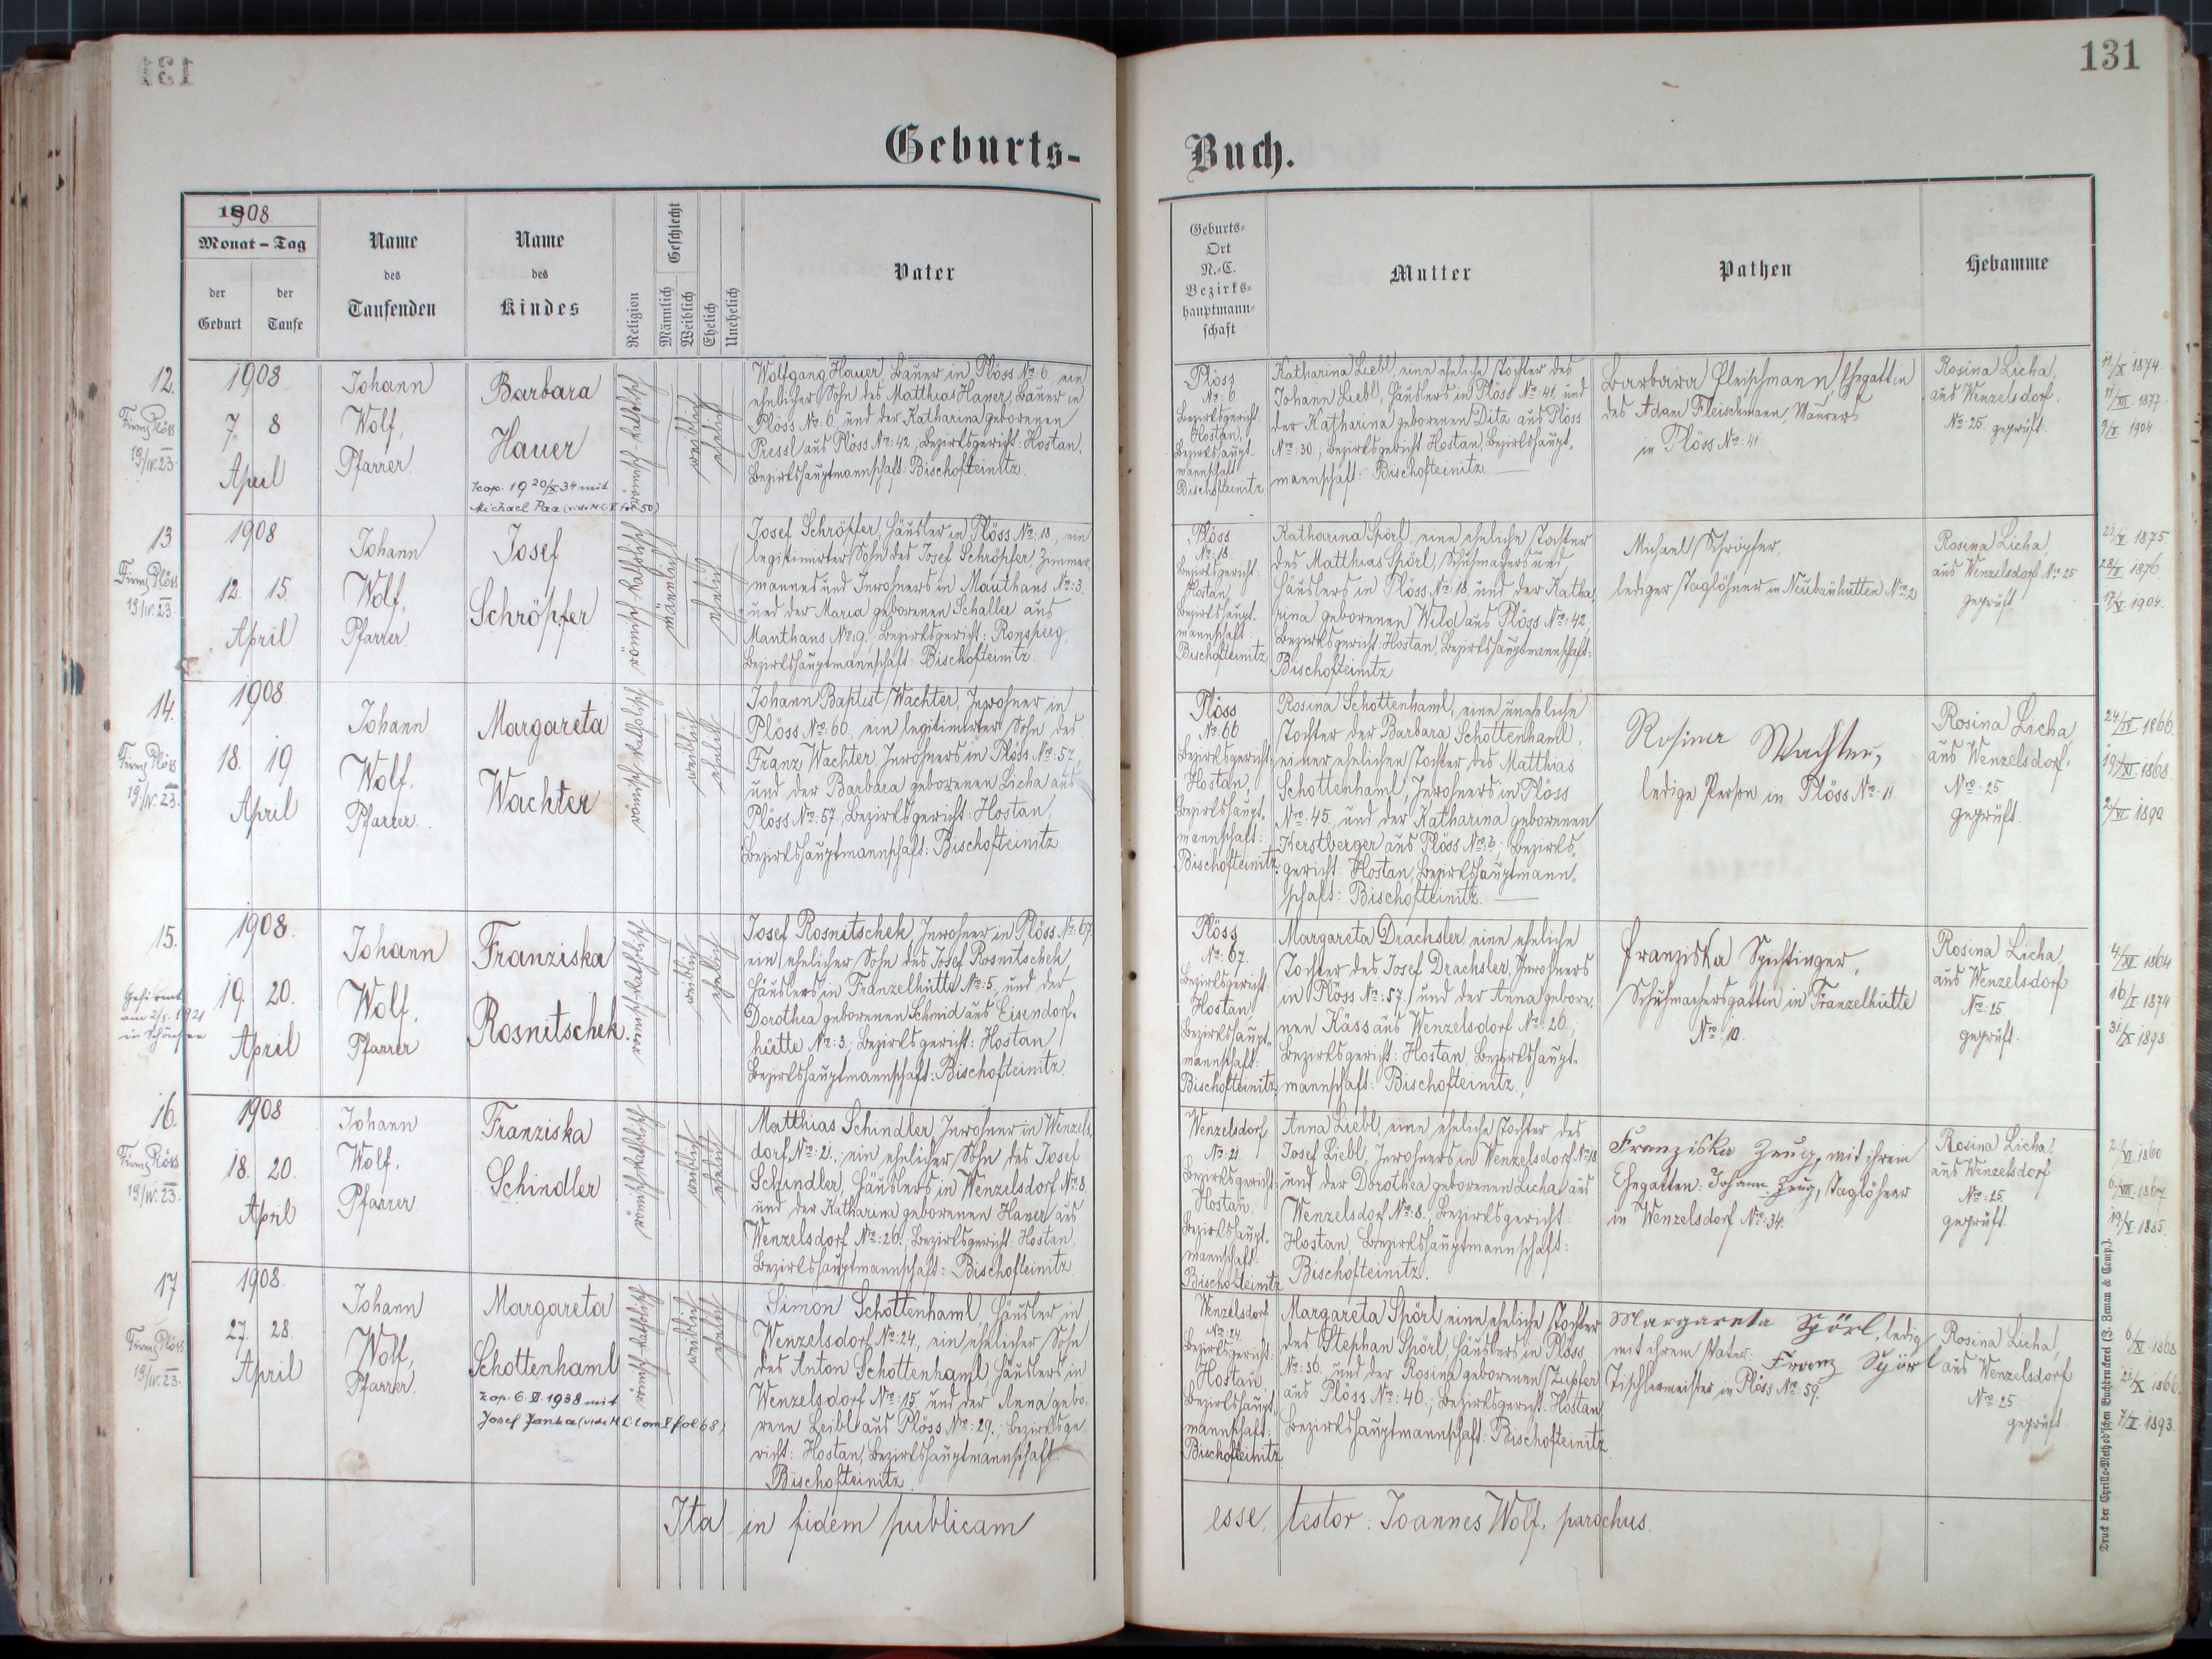 131
Geburts-
Buch.
1908
Monat – Tag
der
Geburt
der
Taufe
Name
des
Taufenden
Name
des
Kindes
Religion
Geschlecht
Männlich
Weiblich
Ehelich
Unehelich
Vater
Geburts-
Ort
N.-C.
Bezirks-
hauptmann-
schaft
Mutter
Pathen
Hebamme
12.
Firmg Plöss
19/IV. 23.
1908
7. 8
April
Johann
Wolf,
Pfarrer
Barbara
Hauer
Kop. 19 20/X 34 mit
Michael Paa (vide M.C. II fol 50)
römisch katholisch
weiblich
ehelich
Wolfgang Hauer, Bauer in Plöss No: 6, ein
ehelicher Sohn des Matthias Hauer, Bauer in
Plöss No: 6, und der Katharina geborenen
Pressl aus Plöss No: 42, Bezirksgericht: Hostau,
Bezirkshauptmannschaft: Bischofteinitz.
Plöss
No: 6
Bezirksgericht:
Hostau,
Bezirkshaupt-
mannschaft
Bischofteinitz
Katharina Liebl, eine eheliche Tochter des
Johann Liebl, Häuslers in Plöss No: 41, und
der Katharina geborenen Ditz aus Plöss
No: 30.; Bezirksgericht Hostau, Bezirkshaupt-
mannschaft: Bischofteinitz.
Barbara Fleischmann, Ehegattin
des Adam Fleischmann, Maurers
in Plöss No: 41
Rosina Licha,
aus Wenzelsdorf.
No: 25. geprüft.
11/X 1874.
11/XII 1877.
9/X 1904
13
Firmg Plöss
19/IV. 23.
1908
12. 15.
April
Johann
Wolf,
Pfarrer
Josef
Schröpfer
römisch katholisch
männlich
ehelich
Josef Schröpfer, Häusler in Plöss No: 18, ein
legitimirter Sohn des Josef Schröpfer, Zimmer-
mannes und Inwohners in Mauthaus No: 3.
und der Maria geborenen Schaller aus
Mauthaus No: 9. Bezirksgericht: Ronsperg,
Bezirkshauptmannschaft: Bischofteinitz.
Plöss
No: 18
Bezirksgericht:
Hostau,
Bezirkshaupt-
mannschaft:
Bischofteinitz
Katharina Spörl, eine eheliche Tochter
des Matthias Spörl, Schuhmachers und
Häuslers in Plöss No: 18 und der Katha-
rina geborenen Wild aus Plöss No: 42,
Bezirksgericht: Hostau, Bezirkshauptmannschaft:
Bischofteinitz
Michael Schröpfer,
lediger Taglöhner in Neubäuhütten No: 2
Rosina Licha,
aus Wenzelsdorf No: 25
geprüft
1875.
1876
17/V 1904.
14.
Firmg Plöss
19/IV. 23.
1908
18. 19
April
Johann
Wolf.
Pfarrer.
Margareta
Wachter
römisch katholisch
weiblich
ehelich
Johann Baptist Wachter, Inwohner in
Plöss No: 66, ein legitimirter Sohn des
Franz Wachter, Inwohners in Plöss No: 57,
und der Barbara geborenen Licha aus
Plöss No: 57. Bezirksgericht: Hostau,
Bezirkshauptmannschaft: Bischofteinitz.
Plöss
No: 66
Bezirksgericht:
Hostau
Bezirkshaupt-
mannschaft:
Bischofteinitz
Rosina Schottenhaml, eine uneheliche
Tochter der Barbara Schottenhaml,
einer ehelichen Tochter des Matthias
Schottenhaml, Inwohners in Plöss
No: 45, und der Katharina geborenen
Kerstberger aus Plöss No: 6; Bezirks-
gericht: Hostau, Bezirkshauptmann-
schaft: Bischofteinitz.
Rosina Wachter,
ledige Person in Plöss No: 11
Rosina Licha,
aus Wenzelsdorf,
No: 25
geprüft.
1866.
19/XI 1868.
2/VI 1890
15.
Gefirmt
am 2/5. 1921
in
1908.
19. 20.
April
Johann
Wolf,
Pfarrer
Franziska
Rosnitschek.
römisch-katholisch
weiblich
ehelich
Josef Rosnitschek, Inwohner in Plöss No: 67
ein ehelicher Sohn des Josef Rosnitschek,
Häuslers in Franzelhütte No: 5, und der
Dorothea geborenen Schmid aus Eisendorf-
hütte No: 3; Bezirksgericht: Hostau,
Bezirkshauptmannschaft: Bischofteinitz.
Plöss
No: 67.
Bezirksgericht:
Hostau
Bezirkshaupt-
mannschaft:
Bischofteinitz
Margareta Drachsler, eine eheliche
Tochter des Josef Drachsler, Inwohners
in Plöss No: 57., und der Anna gebore-
nen Käss aus Wenzelsdorf No: 26.;
Bezirksgericht: Hostau, Bezirkshaupt-
mannschaft: Bischofteinitz.
Franziska Spichtinger,
Schuhmachersgattin in Franzelhütte
No: 10.
Rosina Licha,
aus Wenzelsdorf
No: 25
geprüft.
1864
16/I 1874
31/X 1898
16.
Firmg Plöss
19/IV. 23.
1908
18. 20
April
Johann
Wolf.
Pfarrer
Franziska
Schindler
römisch katholisch
weiblich
ehelich
Matthias Schindler, Inwohner in Wenzels-
dorf No: 21., ein ehelicher Sohn des Josef
Schindler, Häuslers in Wenzelsdorf No: 8.
und der Katharina geborenen Hauer aus
Wenzelsdorf No: 26., Bezirksgericht: Hostau,
Bezirkshauptmannschaft: Bischofteinitz
Wenzelsdorf
No: 21
Bezirksgericht:
Hostau.
Bezirkshaupt-
mannschaft:
Bischofteinitz
Anna Liebl, eine eheliche Tochter des
Josef Liebl, Inwohners in Wenzelsdorf No: 18
und der Dorothea geborenen Licha aus
Wenzelsdorf No: 8., Bezirksgericht:
Hostau, Bezirkshauptmannschaft:
Bischofteinitz.
Franziska Zeug, mit ihrem
Ehegatten: Johann Zeug, Taglöhner
in Wenzelsdorf No: 34.
Rosina Licha,
aus Wenzelsdorf
No: 25
geprüft.
2/VI 1860
1867
19/V 1885.
17
Firmg Plöss
19/IV. 23.
1908.
27. 28.
April
Johann
Wolf,
Pfarrer.
Margareta
Schottenhaml
Kop. 6. II. 1938 mit
Josef Janka (vide M.C. tom II fol 68)
römisch-katholisch
weiblich
ehelich
Simon Schottenhaml, Häusler in
Wenzelsdorf No: 24, ein ehelicher Sohn
des Anton Schottenhaml, Häuslers in
Wenzelsdorf No: 15, und der Anna gebo-
rene Leibl aus Plöss No: 29.; Bezirksge-
richt: Hostau, Bezirkshauptmannschaft:
Bischofteinitz.
Wenzelsdorf
No: 24.
Bezirksgericht:
Hostau
Bezirkshaupt-
mannschaft:
Bischofteinitz
Margareta Spörl, eine eheliche Tochter
des Stephan Spörl, Häuslers in Plöss
No: 36, und der Rosina geborenen Zupfer
aus Plöss No: 46.; Bezirksgericht: Hostau,
Bezirkshauptmannschaft: Bischofteinitz.
Margareta Spörl, ledig
mit ihrem Vater: Franz Spörl
Tischlermeister in Plöss No: 59.
Rosina Licha,
aus Wenzelsdorf
No: 25
geprüft
1868
1866
7/II 1893.
Ita in fidem publicam
esse, testor: Joannes Wolf, parochus.
Druck der Cyrillo-Method'schen Buchdruckerei (J. Zeman & Comp.).